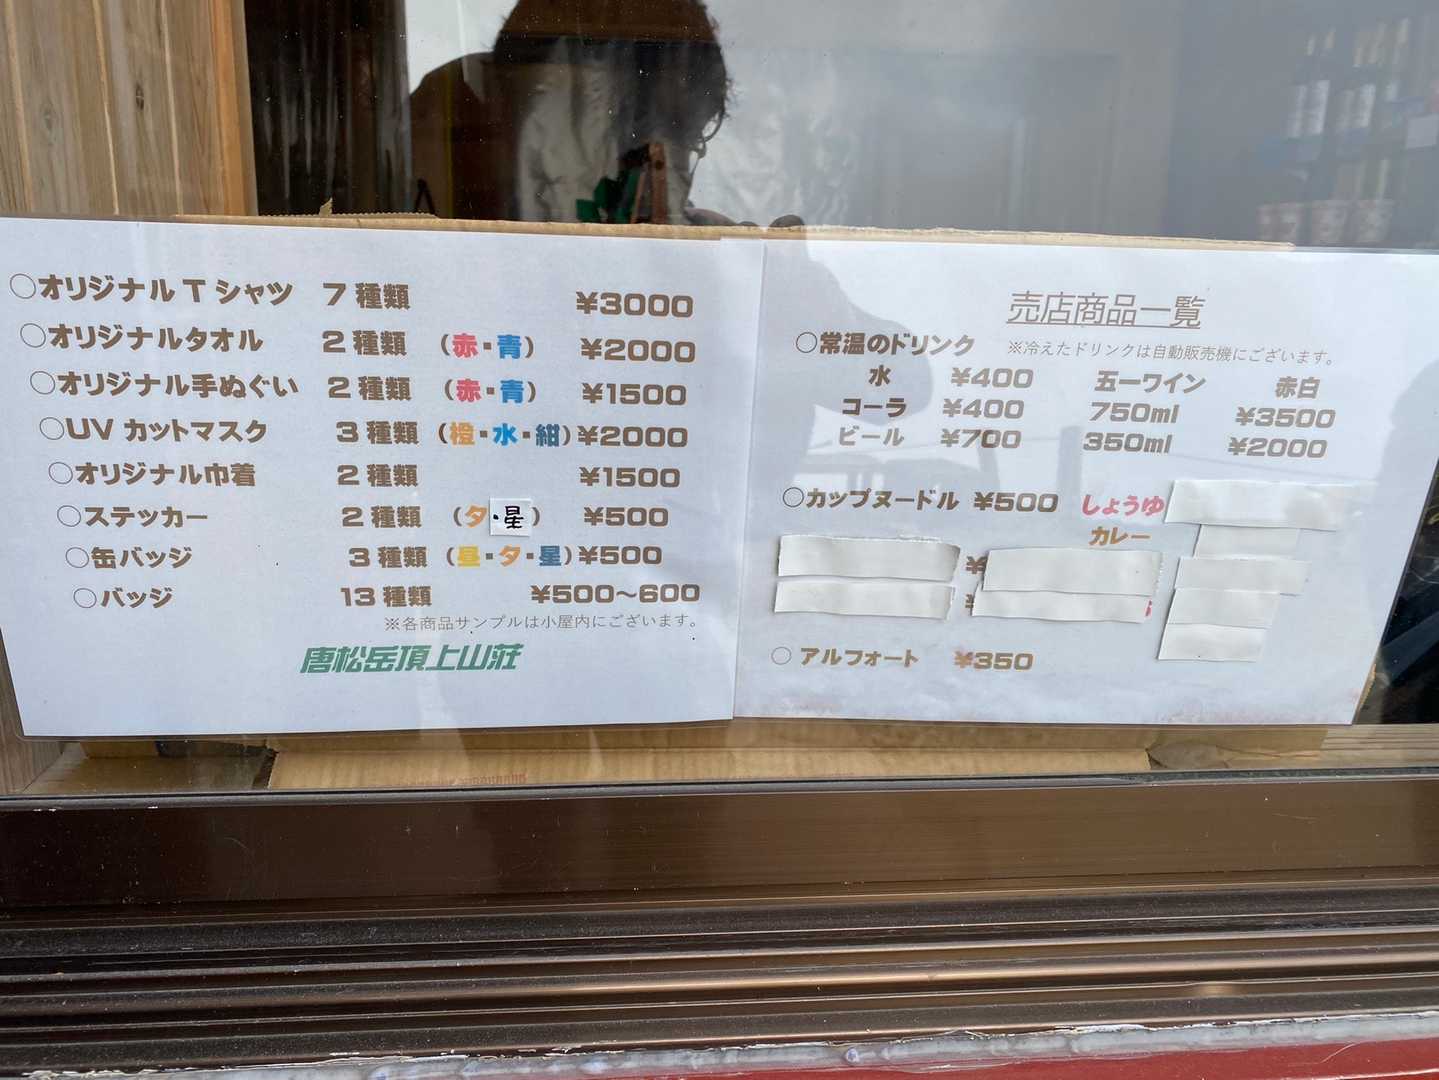 ○オリジナルTシャツ 7種類 ¥3000
○オリジナルタオル 2種類 (赤・青) ¥2000
○オリジナル手ぬぐい 2種類 (赤・青) ¥1500
○UVカットマスク 3種類 (橙・水・紺) ¥2000
○オリジナル巾着 2種類 ¥1500
○ステッカー 2種類 (夕・星) ¥500
○缶バッジ 3種類 (昼・夕・星) ¥500
○バッジ 13種類 ¥500〜600
※各商品サンプルは小屋内にございます。
唐松岳頂上山荘
売店商品一覧
○常温のドリンク ※冷えたドリンクは自動販売機にございます。
水 ¥400 五一ワイン 赤白
コーラ ¥400 750ml ¥3500
ビール ¥700 350ml ¥2000
○カップヌードル ¥500 しょうゆ
カレー
¥
¥
○アルフォート ¥350